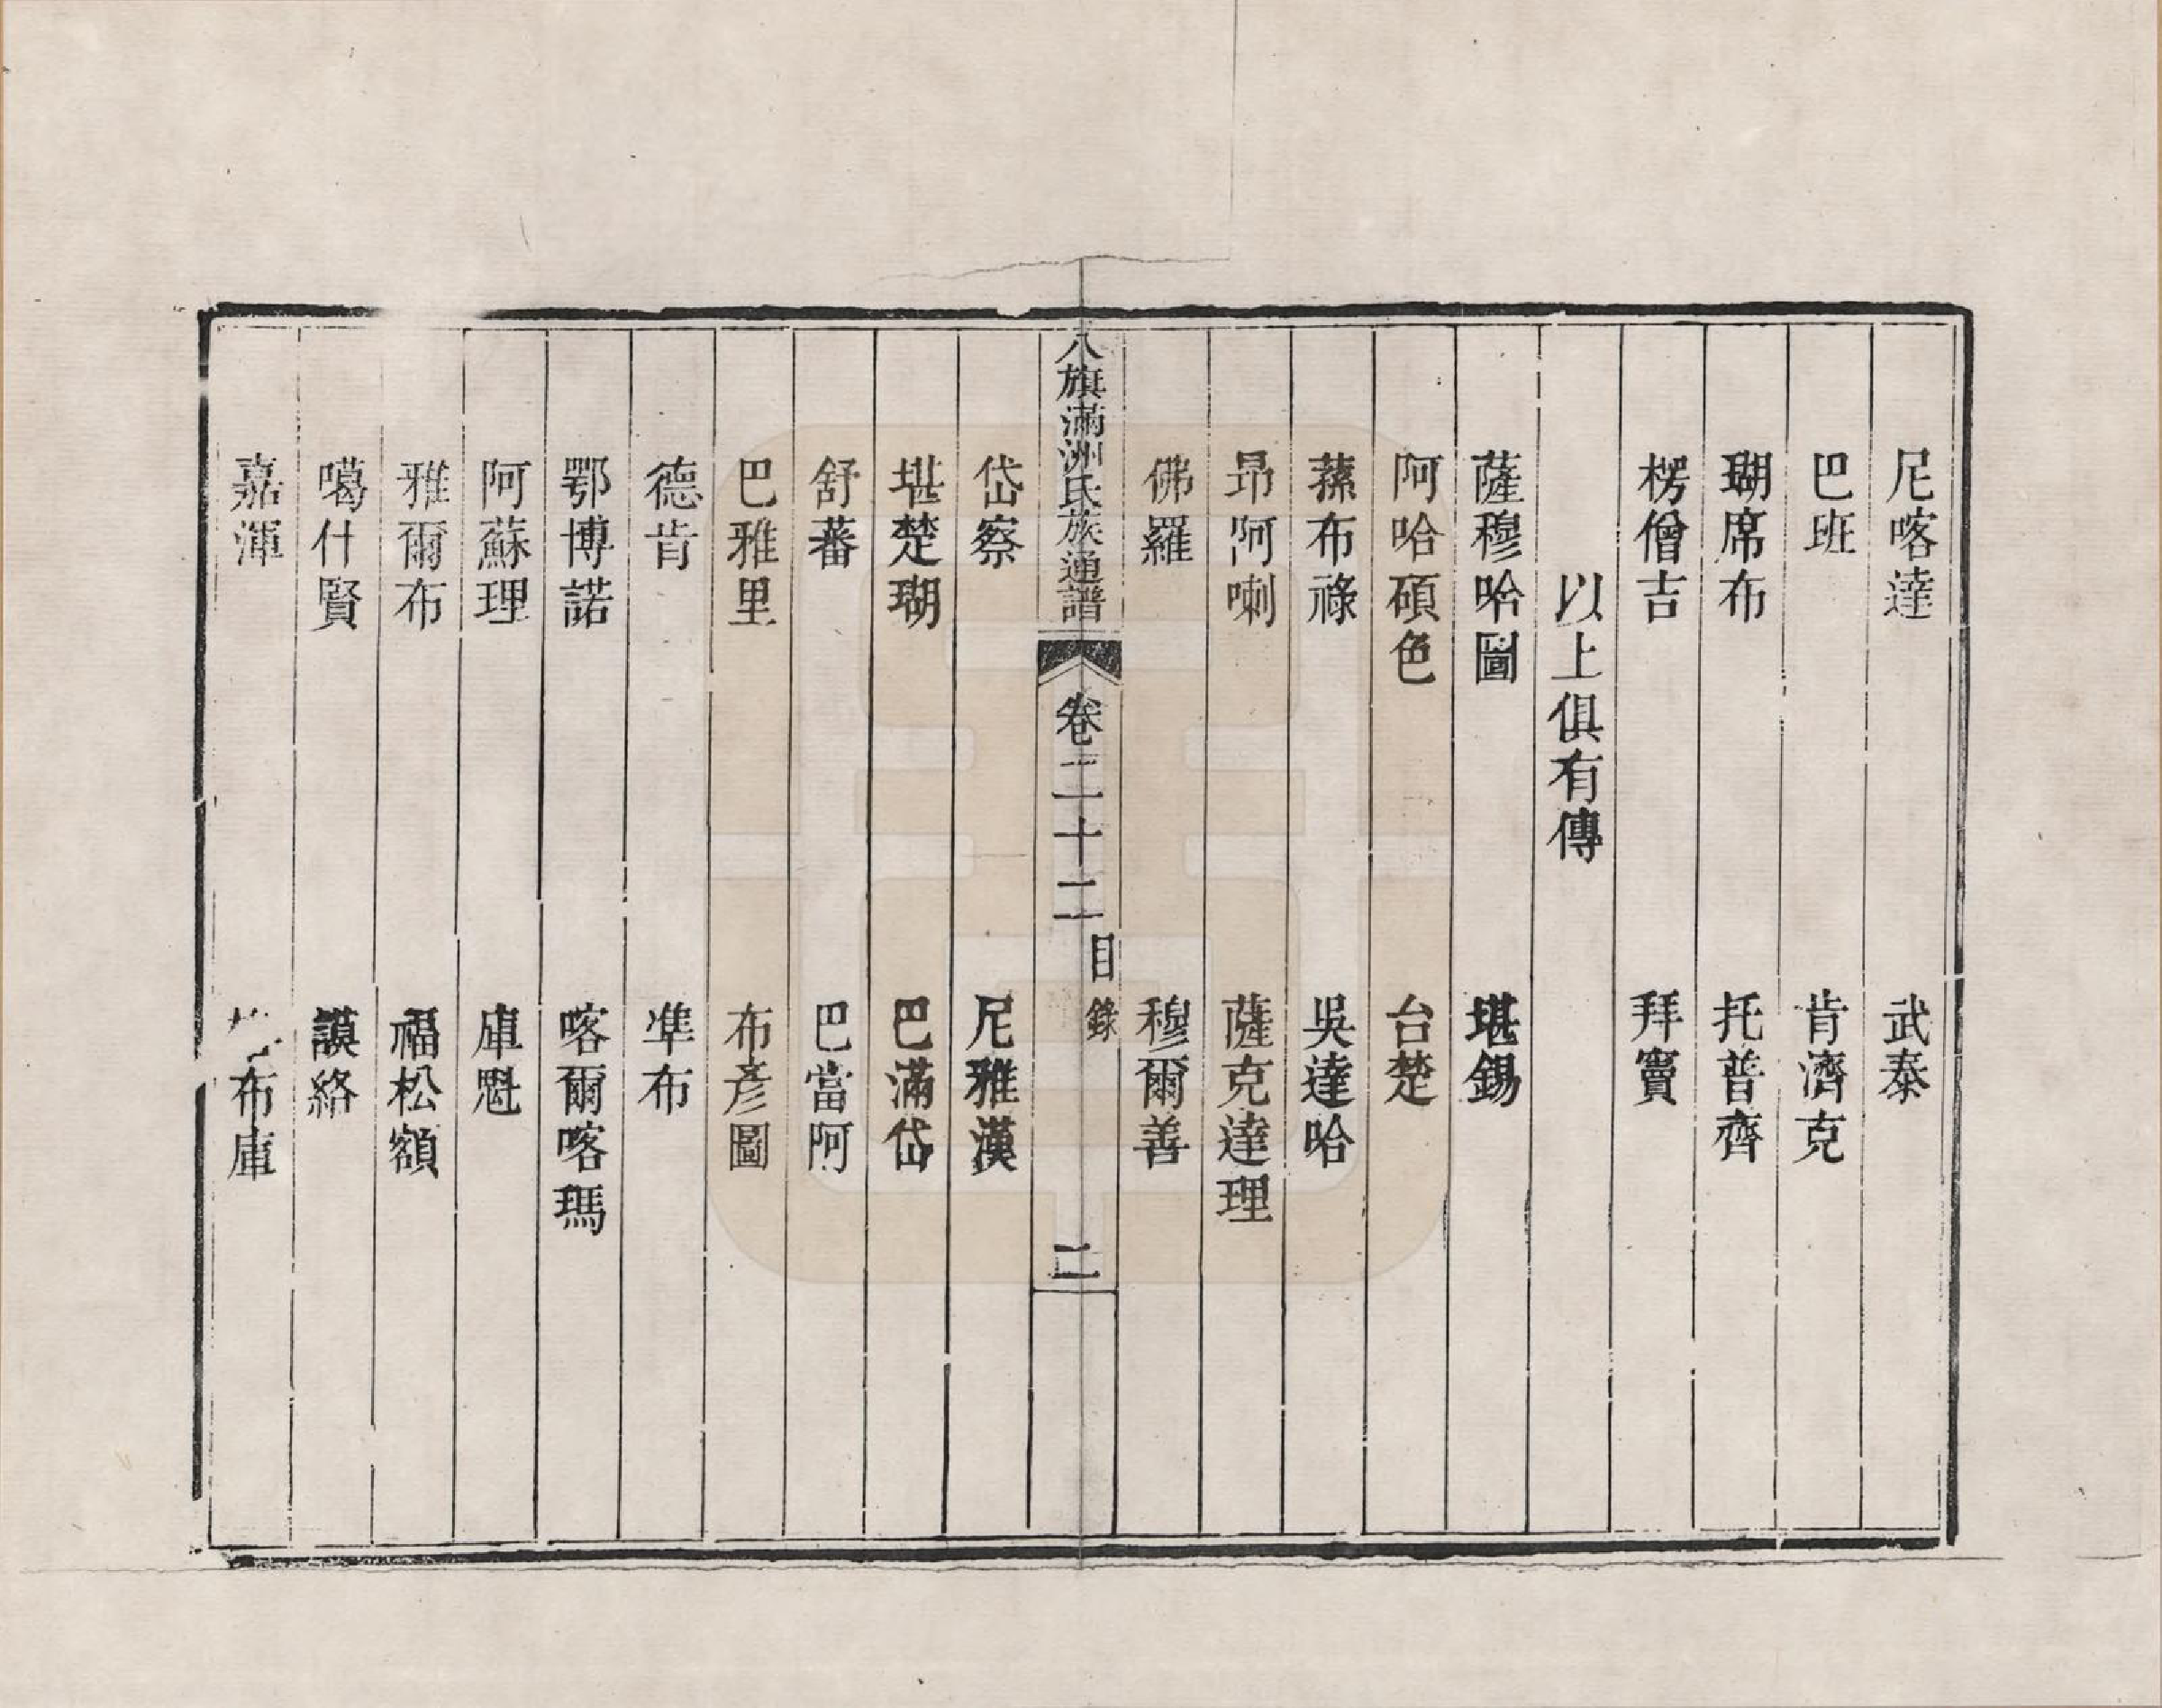 尼喀達　武泰
巴班　肯濟克
瑚席布　托普齊
楞僧吉　拜竇
以上俱有傳
薩穆哈圖　堪錫
阿哈碩色　台楚
蓀布祿　吳達哈
昂阿喇　薩克達理
佛羅　穆爾善
八旗滿洲氏族通譜　卷二十二　目錄　二
岱察　尼雅漢
堪楚瑚　巴滿岱
舒蕃　巴當阿
巴雅里　布彥圖
德肯　準布
鄂博諾　喀爾喀瑪
阿蘇理　庫魁
雅爾布　福松額
噶什賢　謨絡
嘉渾　布庫